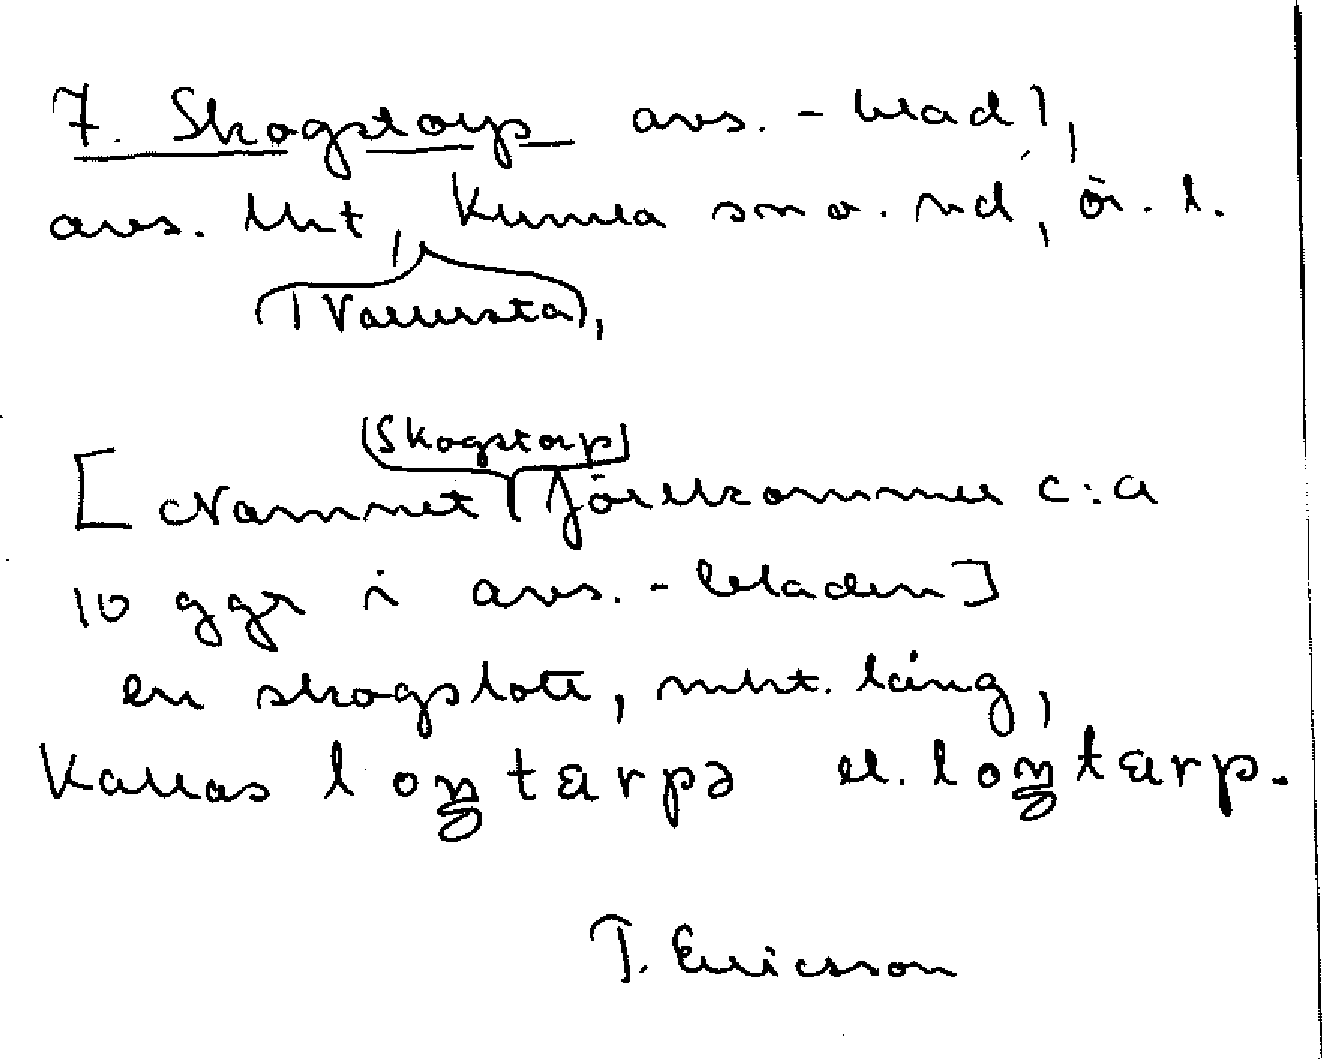 7. Skogstorp avs. - blad),
avs. Urt, Kumla sn o. hd, ö. l.
(Vallersta),
(Skogstorp)
[Namnet förekommer c:a
10 ggr i avs. - bladen]
en skogslott, mkt. lång,
Kallas loŋtarpə el. loŋtarp.
T. Ericsson